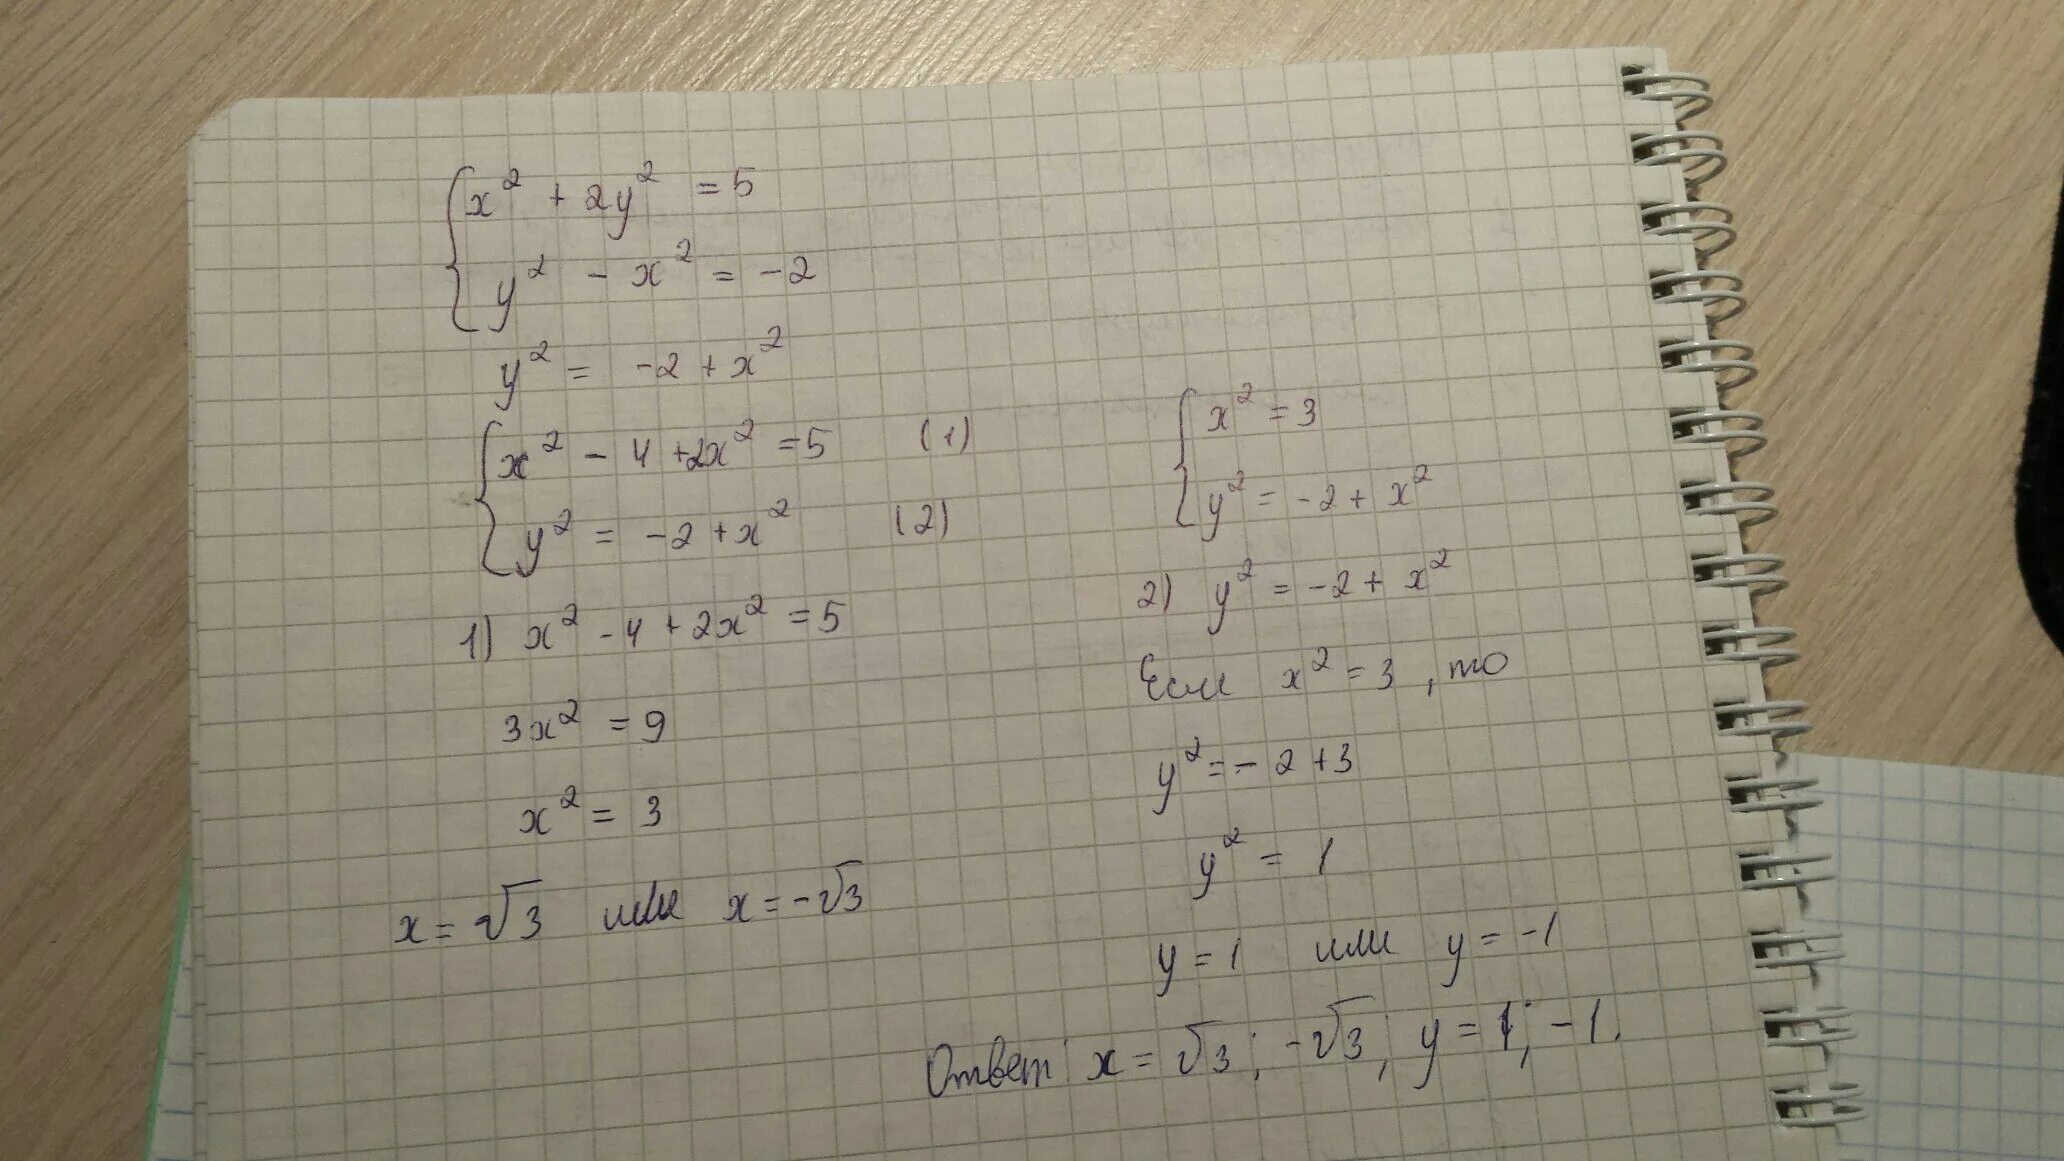 x² + 2y² = 5
y² - x² = -2
y² = -2 + x²
x² - 4 + 2x² = 5 (1)
y² = -2 + x² (2)
1) x² - 4 + 2x² = 5
3x² = 9
x² = 3
x = √3 или x = -√3
x² = 3
y² = -2 + x²
2) y² = -2 + x²
Если x² = 3, то
y² = -2 + 3
y² = 1
y = 1 или y = -1
Ответ: x = √3; -√3; y = 1; -1.